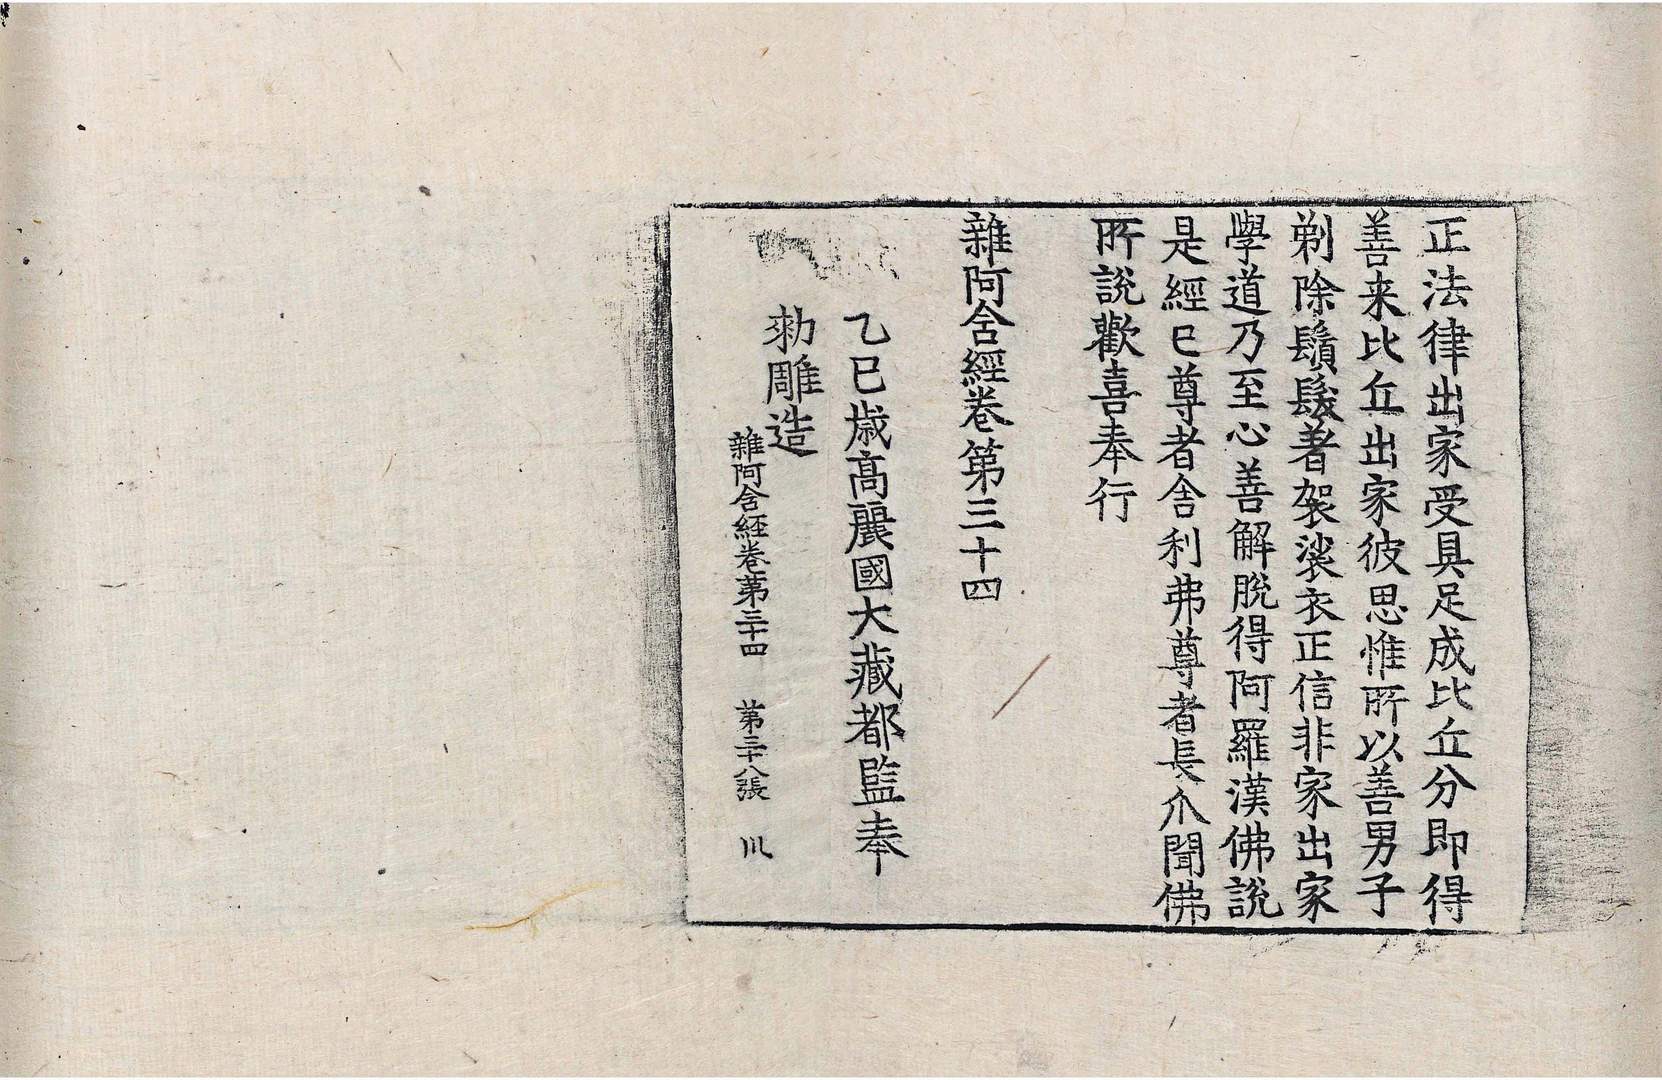 正法律出家受具足成比丘分即得
善来比丘出家彼思惟所以善男子
剃除鬚髮著袈裟衣正信非家出家
學道乃至心善解脫得阿羅漢佛說
是經已尊者舍利弗尊者長爪聞佛
所說歡喜奉行
雜阿含經卷第三十四
乙巳歲高麗國大藏都監奉
勑雕造
雜阿含経卷第三十四 第二十八張 川